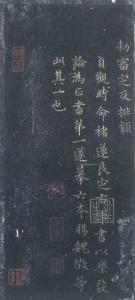 勑審定及排類
貞觀時命褚遂良定右軍書以樂毅
論爲正書第一遂摹六本賜魏徵等
此其一也